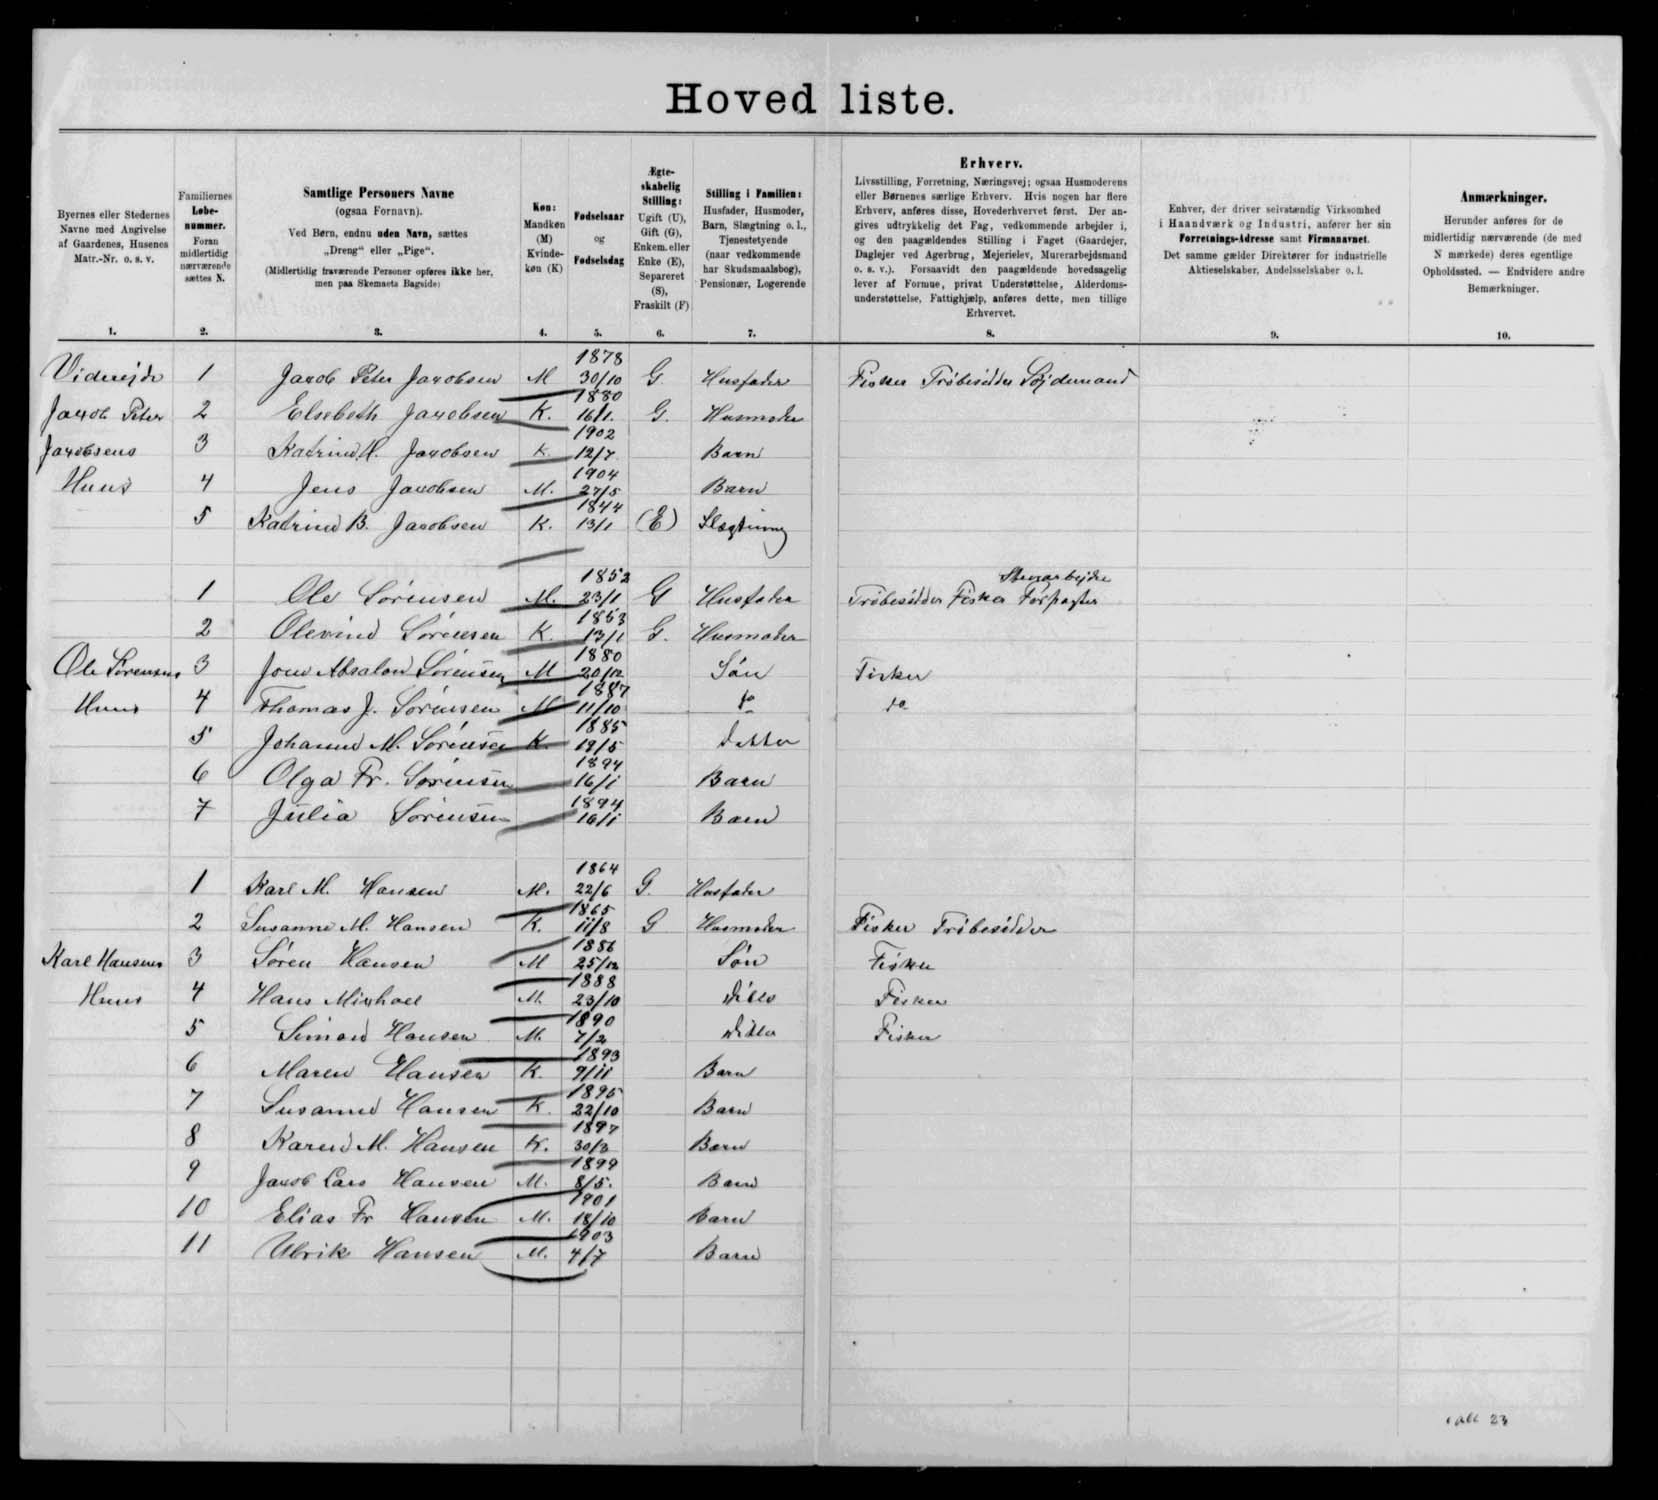 Hoved liste.
Byernes eller Stedernes
Navne med Angivelse
af Gaardenes, Husenes
Matr.-Nr. o. s. v.
1.
Familiernes
Løbe-
nummer.
Foran
midlertidig
nærværende
sættes N.
2.
Samtlige Personers Navne
(ogsaa Fornavn).
Ved Børn, endnu uden Navn, sættes
„Dreng“ eller „Pige“.
(Midlertidig fraværende Personer opføres ikke her,
men paa Skemaets Bagside)
3.
Køn:
Mandkøn
(M)
Kvinde-
køn (K)
4.
Fødselsaar
og
Fødselsdag
5.
Ægte-
skabelig
Stilling:
Ugift (U),
Gift (G),
Enkem. eller
Enke (E),
Separeret
(S),
Fraskilt (F)
6.
Stilling i Familien:
Husfader, Husmoder,
Barn, Slægtning o. l.,
Tjenestetyende
(naar vedkommende
har Skudsmaalsbog),
Pensionær, Logerende
7.
Erhverv.
Livsstilling, Forretning, Næringsvej; ogsaa Husmoderens
eller Børnenes særlige Erhverv. Hvis nogen har flere
Erhverv, anføres disse, Hovederhvervet først. Der an-
gives udtrykkelig det Fag, vedkommende arbejder i,
og den paagældendes Stilling i Faget (Gaardejer,
Daglejer ved Agerbrug, Mejerielev, Murerarbejdsmand
o. s. v.). Forsaavidt den paagældende hovedsagelig
lever af Formue, privat Understøttelse, Alderdoms-
understøttelse, Fattighjælp, anføres dette, men tillige
Erhvervet.
8.
Enhver, der driver selvstændig Virksomhed
i Haandværk og Industri, anfører her sin
Forretnings-Adresse samt Firmanavnet.
Det samme gælder Direktører for industrielle
Aktieselskaber, Andelsselskaber o. l.
9.
Anmærkninger.
Herunder anføres for de
midlertidig nærværende (de med
N mærkede) deres egentlige
Opholdssted. — Endvidere andre
Bemærkninger.
10.
Viderejde 1 Jacob Peter Jacobsen M 1878 30/10 G Husfader Fisker Trøbesidder Søjdemand
Jacob Peter 2 Elsebeth Jacobsen K. 1880 16/1. G. Husmoder
Jacobsens 3 Katrine M. Jacobsen K 1902 12/7 Barn
Huus 4 Jens Jacobsen M. 1904 27/5 Barn
5 Katrine B. Jacobsen K. 1844 13/1 (E) Slægtning
1 Ole Sørensen M. 1852 23/1 G Husfader Trøbesidder Fisker Forpagter Stenarbejder
2 Olevine Sørensen K. 1853 13/1 G. Husmoder
Ole Sørensens 3 Joen Absalon Sørensen M 1880 20/12 Søn Fisker
Huus 4 Thomas J. Sørensen M 1887 11/10 do do
5 Johanne M. Sørensen K. 1885 19/5 datter
6 Olga Fr. Sørensen 1894 16/1 Barn
7 Julia Sørensen 1894 16/1 Barn
1 Karl M. Hansen M. 1864 22/6 G. Husfader
2 Susanne M. Hansen K. 1865 11/8 G Husmoder Fisker Trøbesidder
Karl Hansens 3 Søren Hansen M 1886 25/12 Søn Fisker
Huus 4 Hans Michael M. 1888 23/10 ditto Fisker
5 Simon Hansen M. 1890 7/2 ditto Fisker
6 Maren Hansen K. 1893 9/11 Barn
7 Susanne Hansen K. 1895 22/10 Barn
8 Karen M. Hansen K. 1897 30/3 Barn
9 Jacob Lars Hansen M. 1899 8/5. Barn
10 Elias Fr Hansen M. 1901 18/10 Barn
11 Ulrik Hansen M. 1903 4/7 Barn
i alt 23